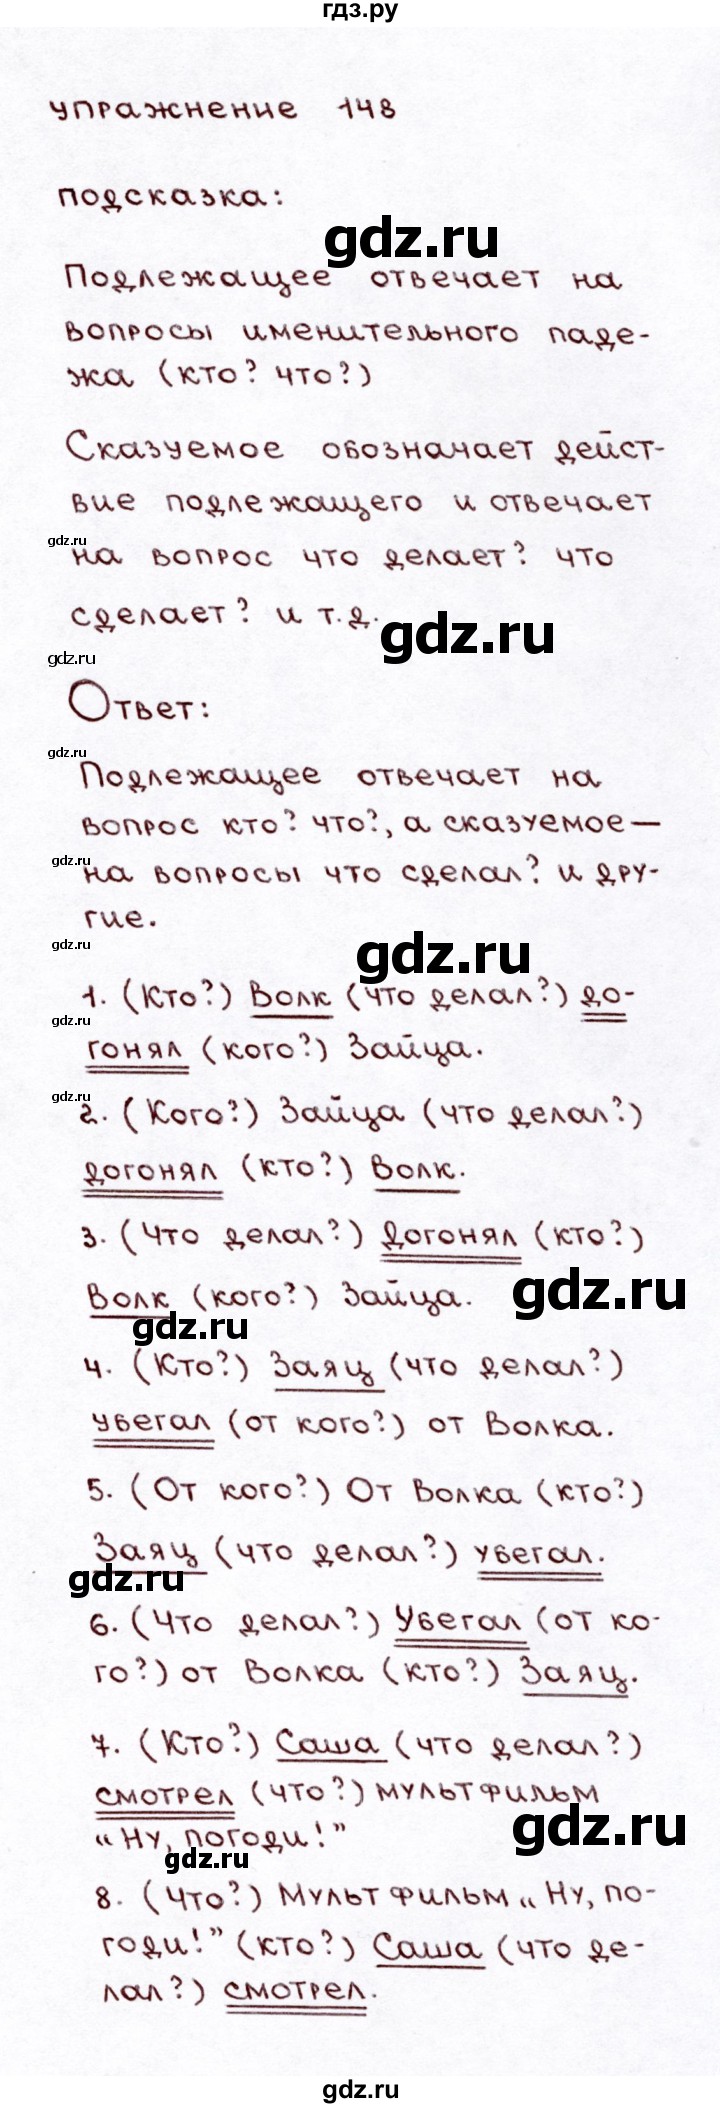 гдз.ру
упражнение 148
подсказка:
gdz.ru
Подлежащее отвечает на
вопросы именительного паде-
жа (кто? что?)
Сказуемое обозначает дейст-
вие подлежащего и отвечает
gdz.ru
на вопрос что делает? что
сделает? и т.д.
gdz.ru
gdz.ru
Ответ:
gdz.ru
Подлежащее отвечает на
вопрос кто? что?, а сказуемое—
gdz.ru
на вопросы что сделал? и дру-
гие.
gdz.ru
gdz.ru
1. (Кто?) Волк (что делал?) до-
gdz.ru
гонял (кого?) Зайца.
gdz.ru
2. (Кого?) Зайца (что делал?)
догонял (кто?) Волк.
3. (Что делал?) Догонял (кто?)
Волк (кого?) Зайца.
gdz.ru
gdz.ru
4. (Кто?) Заяц (что делал?)
убегал (от кого?) от Волка.
5. (От кого?) От Волка (кто?)
Заяц (что делал?) убегал.
gdz.ru
6. (Что делал?) Убегал (от ко-
го?) от Волка (кто?) Заяц.
7. (Кто?) Саша (что делал?)
смотрел (что?) мультфильм
gdz.ru
„Ну, погоди!”
gdz.ru
8. (Что?) Мультфильм „Ну, по-
годи!” (кто?) Саша (что де-
лал?) смотрел.
gdz.ru